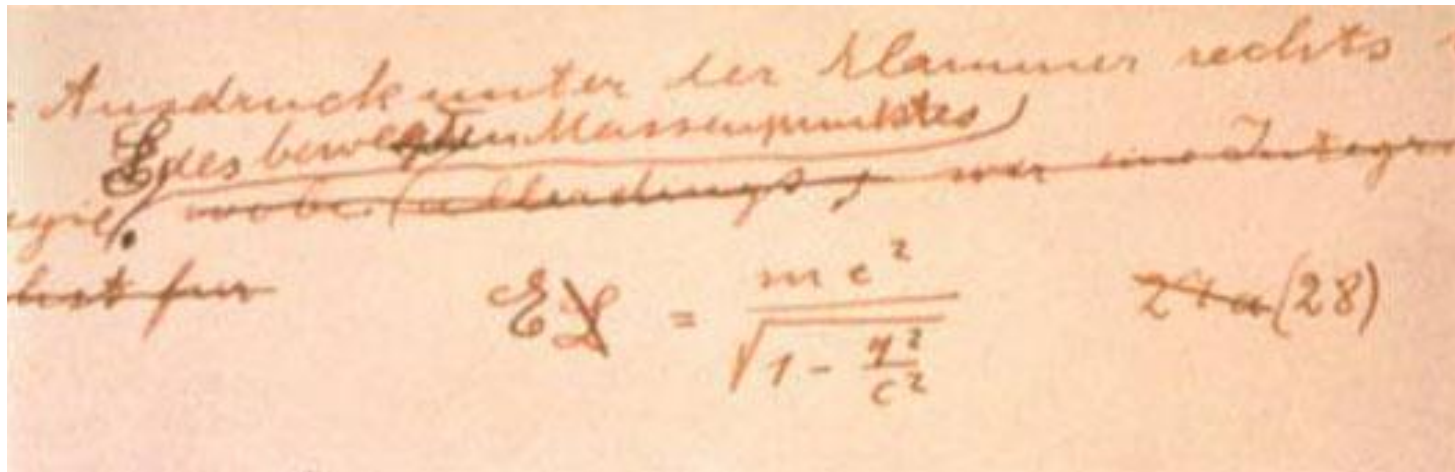 Ausdruck unter der Klammer rechts
E des bewegten Massenpunktes
wobei (allerdings) war eine Integr
hst für
E L = mc² / √(1 - q²/c²) 24a (28)